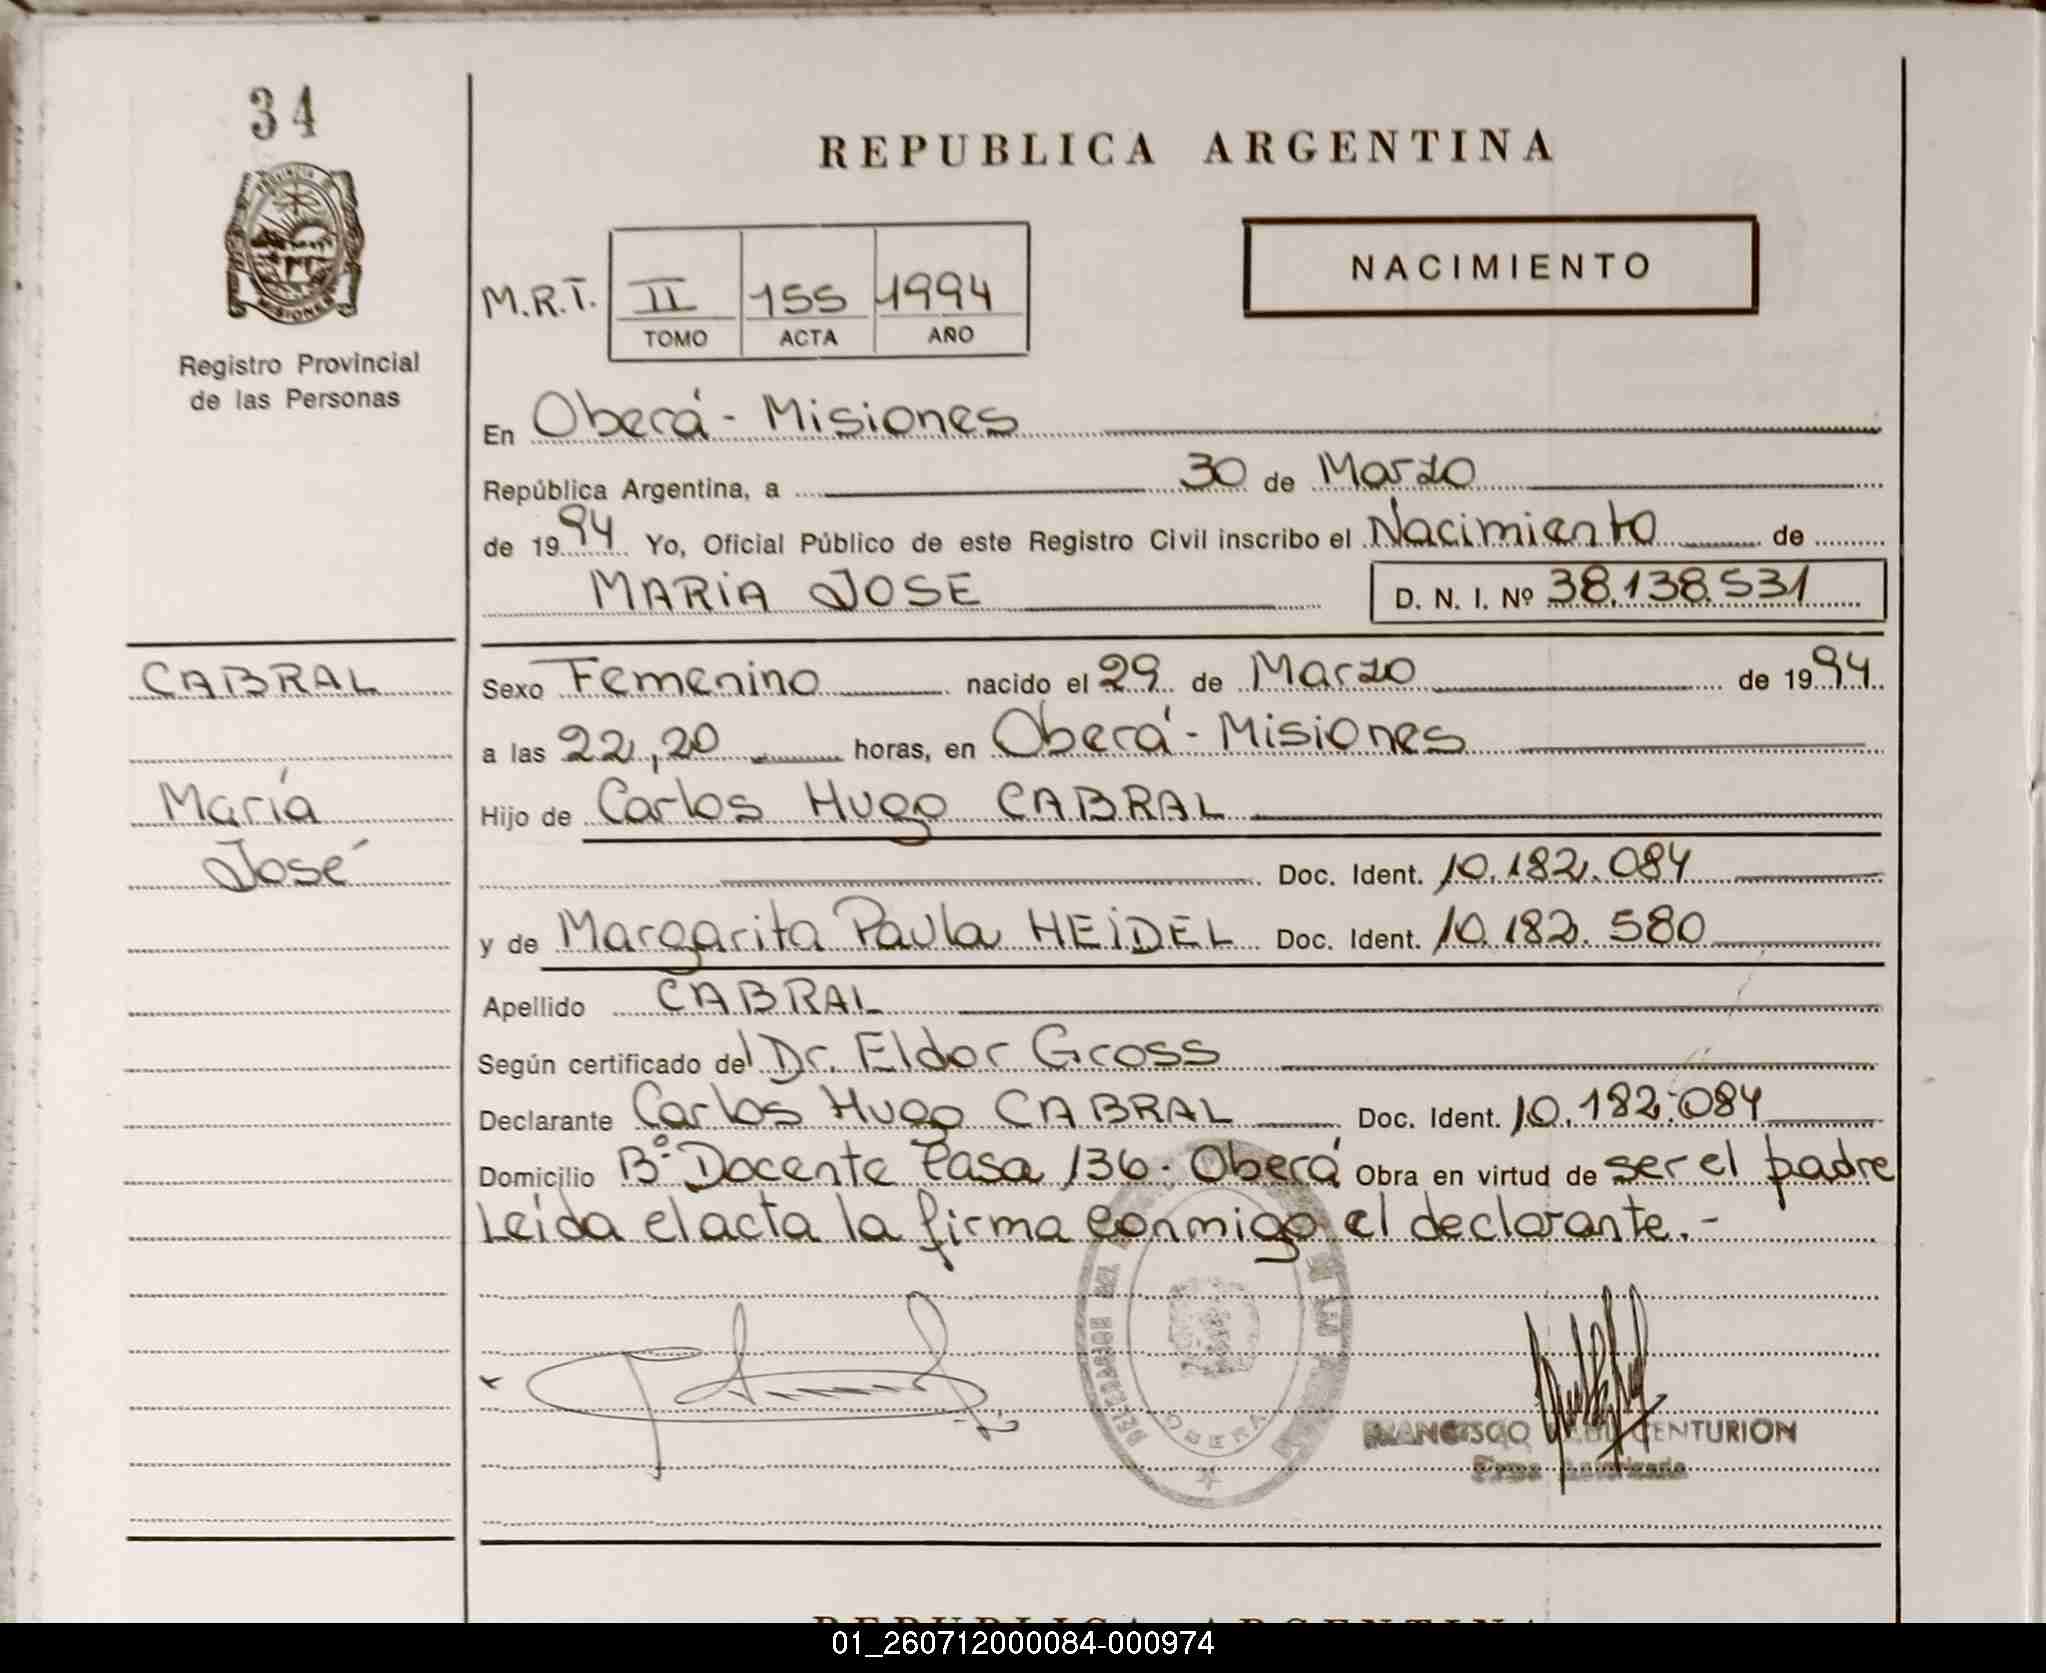 34
REPUBLICA ARGENTINA
NACIMIENTO
M.R.T. II 155 1994
TOMO ACTA AÑO
PROVINCIA DE
MISIONES
Registro Provincial
de las Personas
En Oberá - Misiones
República Argentina, a 30 de Marzo
de 1994 Yo, Oficial Público de este Registro Civil inscribo el Nacimiento de
MARIA JOSE D. N. I. Nº 38.138.531
CABRAL
María
José
Sexo Femenino nacido el 29 de Marzo de 1994
a las 22,20 horas, en Oberá - Misiones
Hijo de Carlos Hugo CABRAL
Doc. Ident. 10.182.084
y de Margarita Paula HEIDEL Doc. Ident. 10.182.580
Apellido CABRAL
Según certificado del Dr. Eldor Gross
Declarante Carlos Hugo CABRAL Doc. Ident. 10.182.084
Domicilio Bº Docente Casa 136 - Oberá Obra en virtud de ser el padre
Leida el acta la firma conmigo el declarante.-
OBERA
FRANCISCO CENTURION
Firma Autorizada
REPUBLICA ARGENTINA
01_260712000084-000974